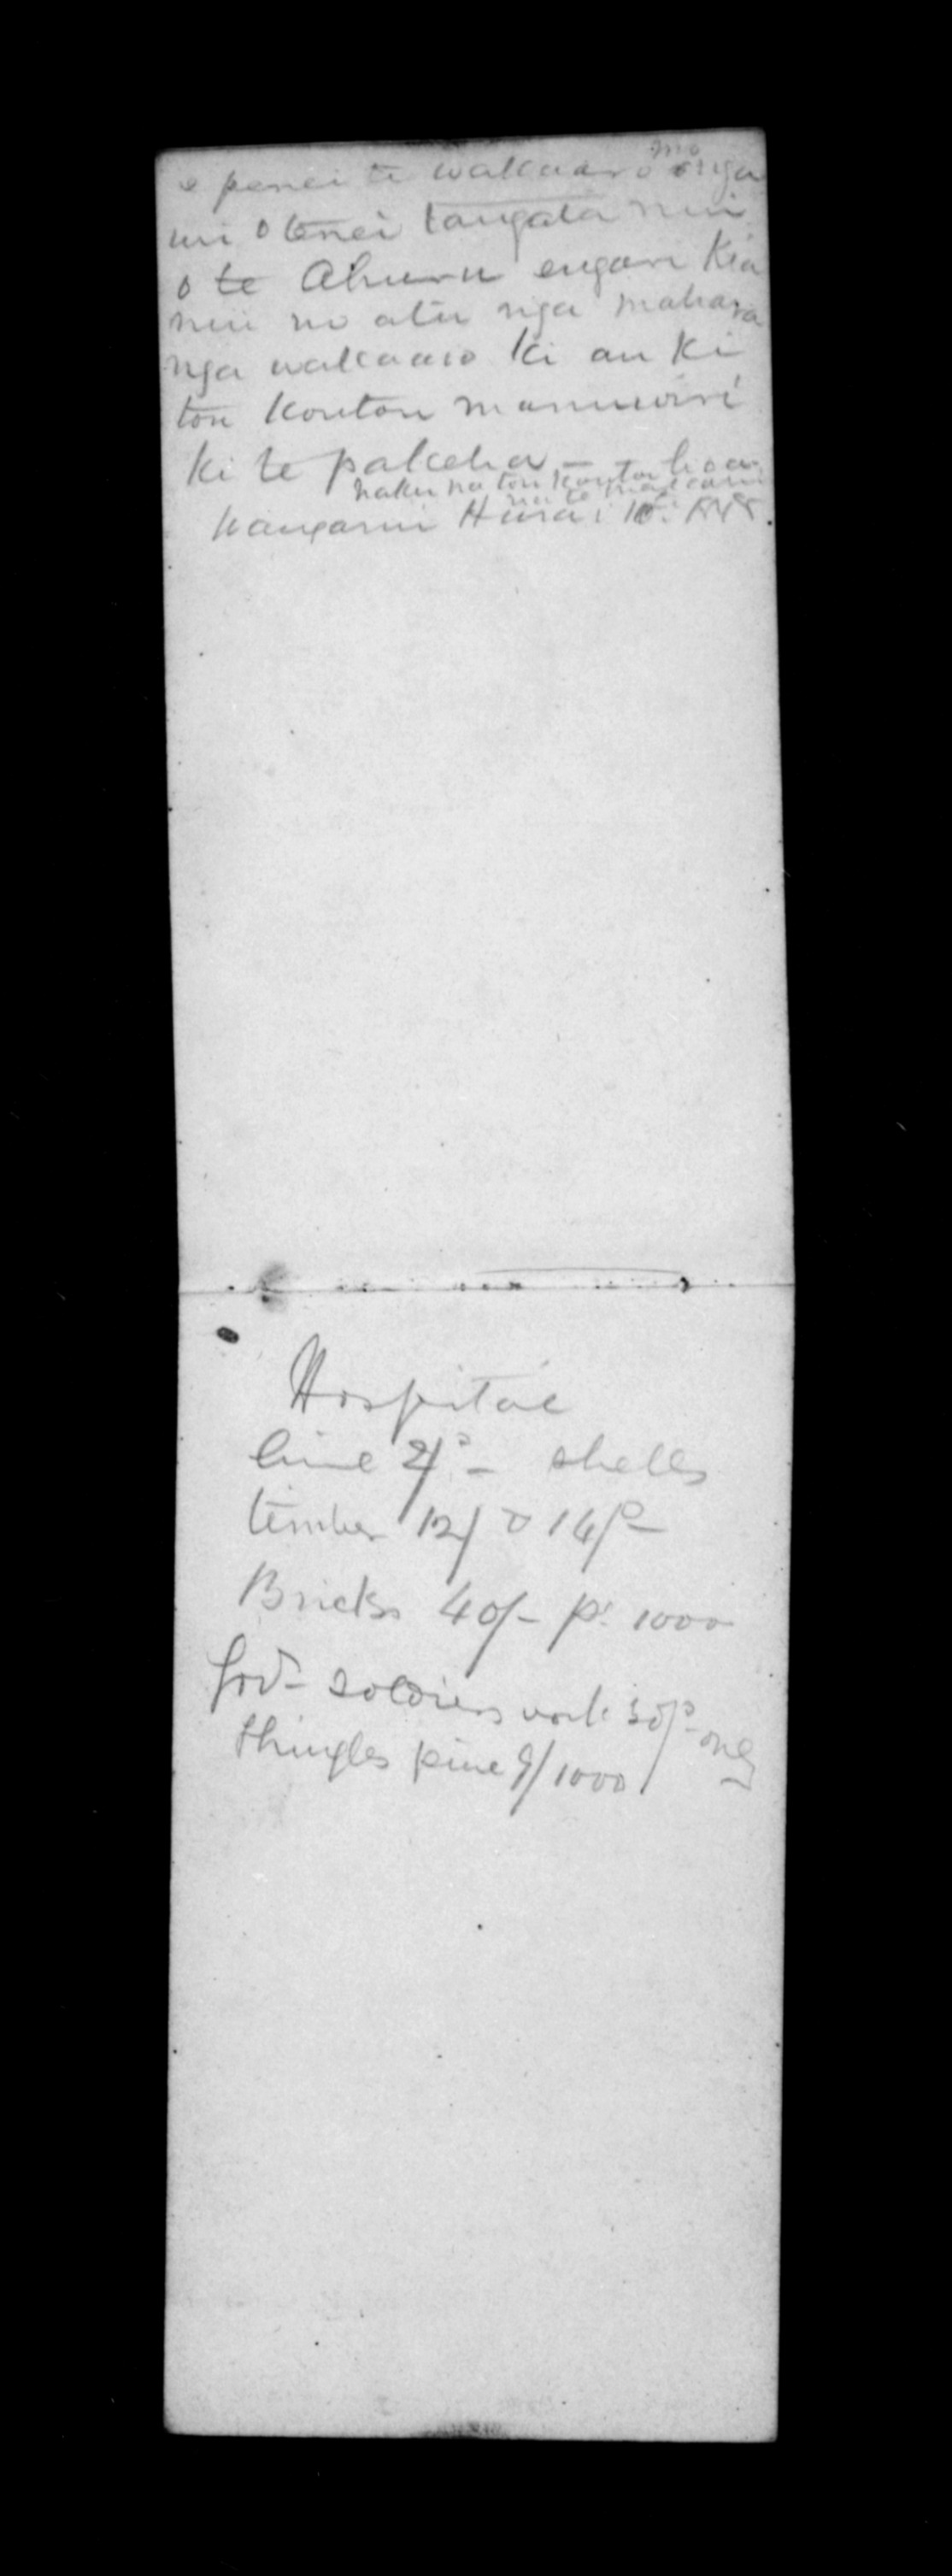 e penei te wakaaro mo nga
iwi o tenei tangata nui
o te Ahuru engari Kia
nui no atu nga mahara
nga wakaaro Ki au Ki
tou Koutou manuwiri
ki te pakeha —
naku na tou Koutou hoa
na te makarini
Wangarui Hurai 10
Hospital
lime 2/ - shells
timber 12/ 14/-
Bricks 40/- pr 1000
Gov- soldiers work 30/- only
Shingles pine 9/1000